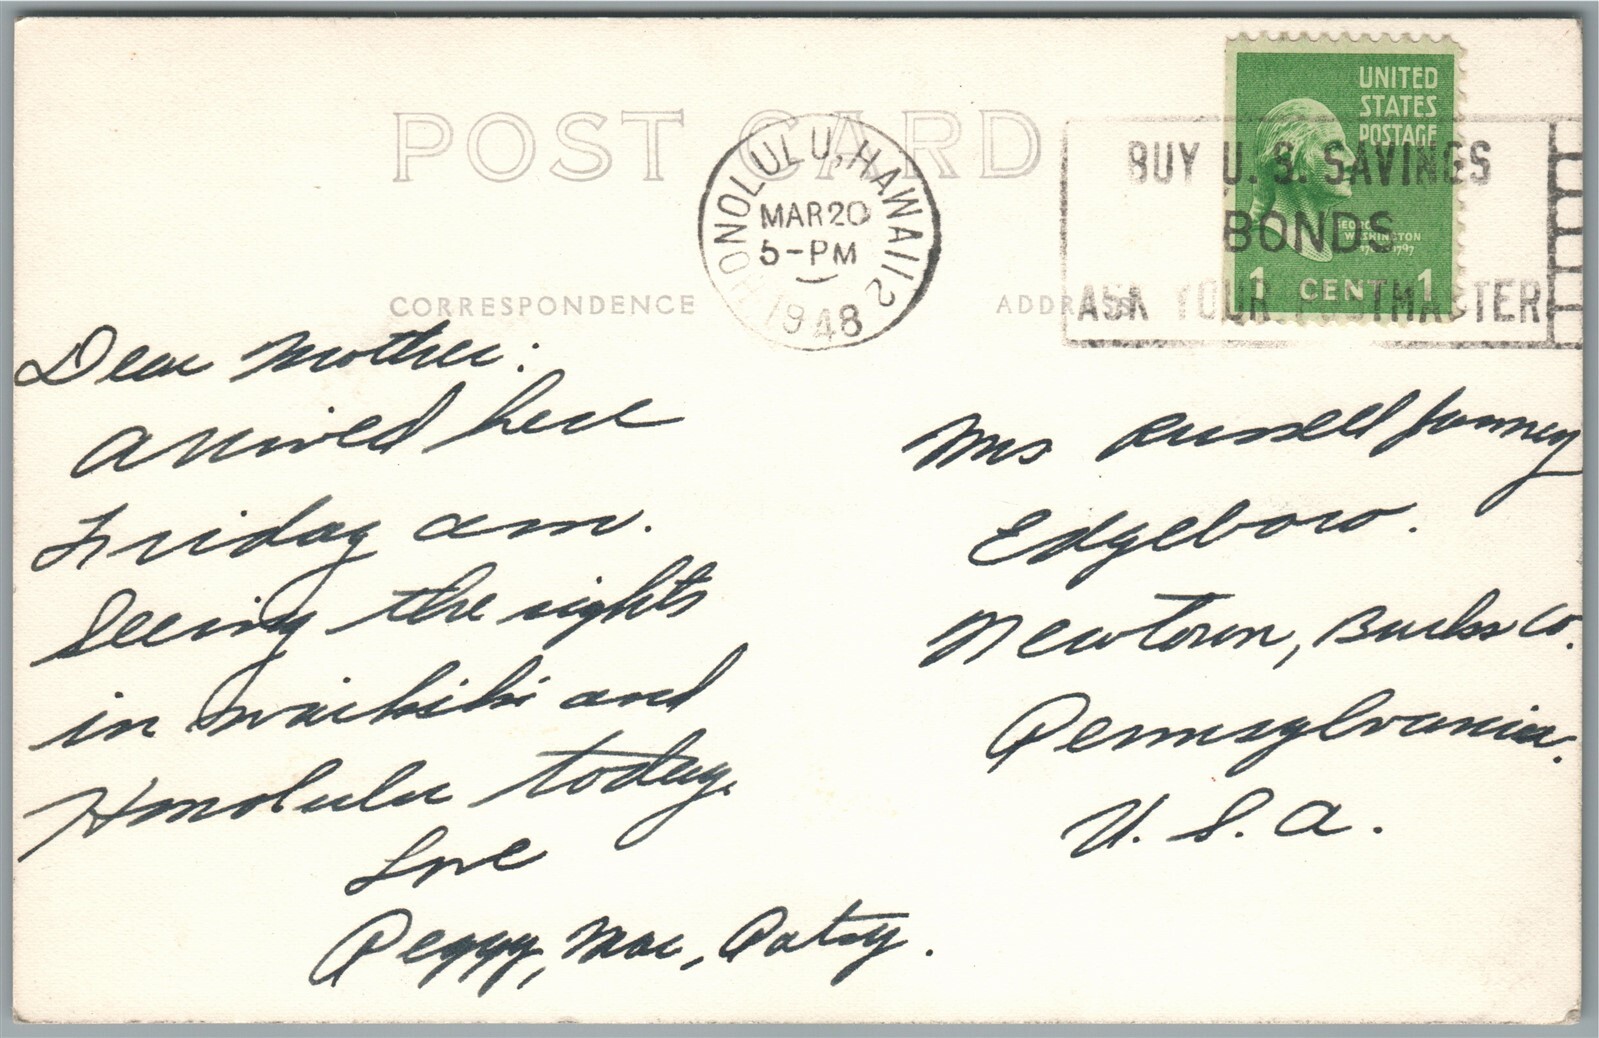 POST CARD
HONOLULU, HAWAII 2
MAR 20
5-PM
1948
UNITED
STATES
POSTAGE
GEORGE
WASHINGTON
1 CENT 1
BUY U. S. SAVINGS
BONDS
ASK YOUR POSTMASTER
CORRESPONDENCE
ADDRESS
Dear Mother:
Arrived here
Friday am.
Seeing the sights
in Waikiki and
Honolulu today.
Love
Peggy, Mac, Patsy.
Mrs Russell Janney
Edgeboro.
Newtown, Bucks Co.
Pennsylvania.
U. S. A.